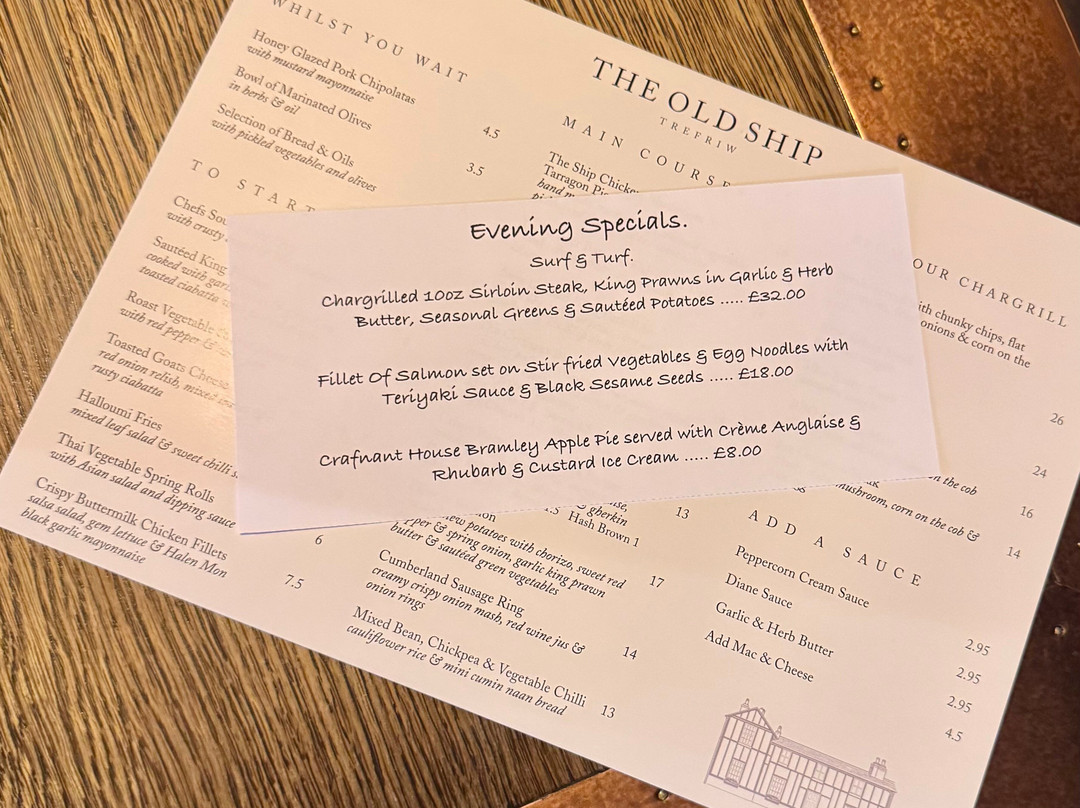 WHILST YOU WAIT
Honey Glazed Pork Chipolatas
with mustard mayonnaise
4.5
Bowl of Marinated Olives
in herbs & oil
3.5
Selection of Bread & Oils
with pickled vegetables and olives
TO START
Chefs
with crusty
Sautéed King
cooked with
toasted ciabatta
Roast Vegetable
with red pepper &
Toasted Goats Cheese
red onion relish, mixed
rusty ciabatta
Halloumi Fries
mixed leaf salad & sweet chilli
Thai Vegetable Spring Rolls
with Asian salad and dipping sauce
6
Crispy Buttermilk Chicken Fillets
salsa salad, gem lettuce & Halen Mon
black garlic mayonnaise
7.5
THE OLD SHIP
TREFRIW
MAIN COURSE
The Ship
Tarragon
Evening Specials.
Surf & Turf.
Chargrilled 10oz Sirloin Steak, King Prawns in Garlic & Herb
Butter, Seasonal Greens & Sautéed Potatoes ..... £32.00
Fillet Of Salmon set on Stir fried Vegetables & Egg Noodles with
Teriyaki Sauce & Black Sesame Seeds ..... £18.00
Crafnant House Bramley Apple Pie served with Crème Anglaise &
Rhubarb & Custard Ice Cream ..... £8.00
gherkin
Hash Brown 1
13
new potatoes with chorizo, sweet red
& spring onion, garlic king prawn
butter & sautéed green vegetables
17
Cumberland Sausage Ring
creamy crispy onion mash, red wine jus &
onion rings
14
Mixed Bean, Chickpea & Vegetable Chilli
cauliflower rice & mini cumin naan bread
13
OUR CHARGRILL
with chunky chips, flat
onions & corn on the
26
24
the cob
16
mushroom, corn on the cob &
14
ADD A SAUCE
Peppercorn Cream Sauce
2.95
Diane Sauce
2.95
Garlic & Herb Butter
2.95
Add Mac & Cheese
4.5